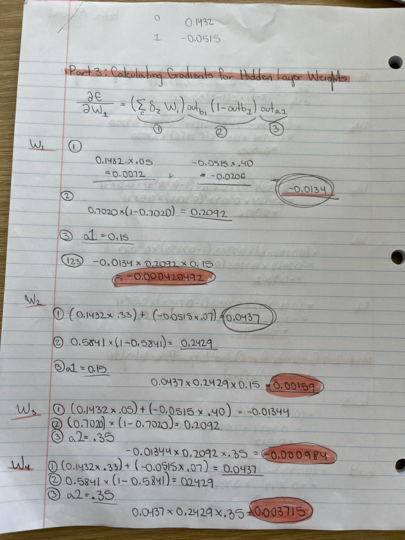 0 0.1432
1 -0.0515
Part 3: Calculating Gradients for Hidden Layer Weights
∂E/∂W₁ = (Σ δ₂ W₁) out_b₁ (1-out_b₁) out_a₁
① ② ③
W₁ ①
0.1432 x .05 -0.0515 x .40
= 0.0072 + = -0.0206 -0.0134
②
0.7020 x (1-0.7020) = 0.2092
③ a1 = 0.15
①②③ -0.0134 x 0.2092 x 0.15
= -0.000420492
W₂
① (0.1432 x .33) + (-0.0515 x .07) = 0.0437
② 0.5841 x (1-0.5841) = 0.2429
③ a1 = 0.15
0.0437 x 0.2429 x 0.15 = 0.00159
W₃ ① (0.1432 x .05) + (-0.0515 x .40) = -0.01344
② (0.7020) x (1-0.7020) = 0.2092
③ a2 = .35
-0.01344 x 0.2092 x .35 = -0.000984
W₄ ① (0.1432 x .33) + (-0.0515 x .07) = 0.0437
② 0.5841 x (1-0.5841) = 0.2429
③ a2 = .35
0.0437 x 0.2429 x .35 = 0.003715